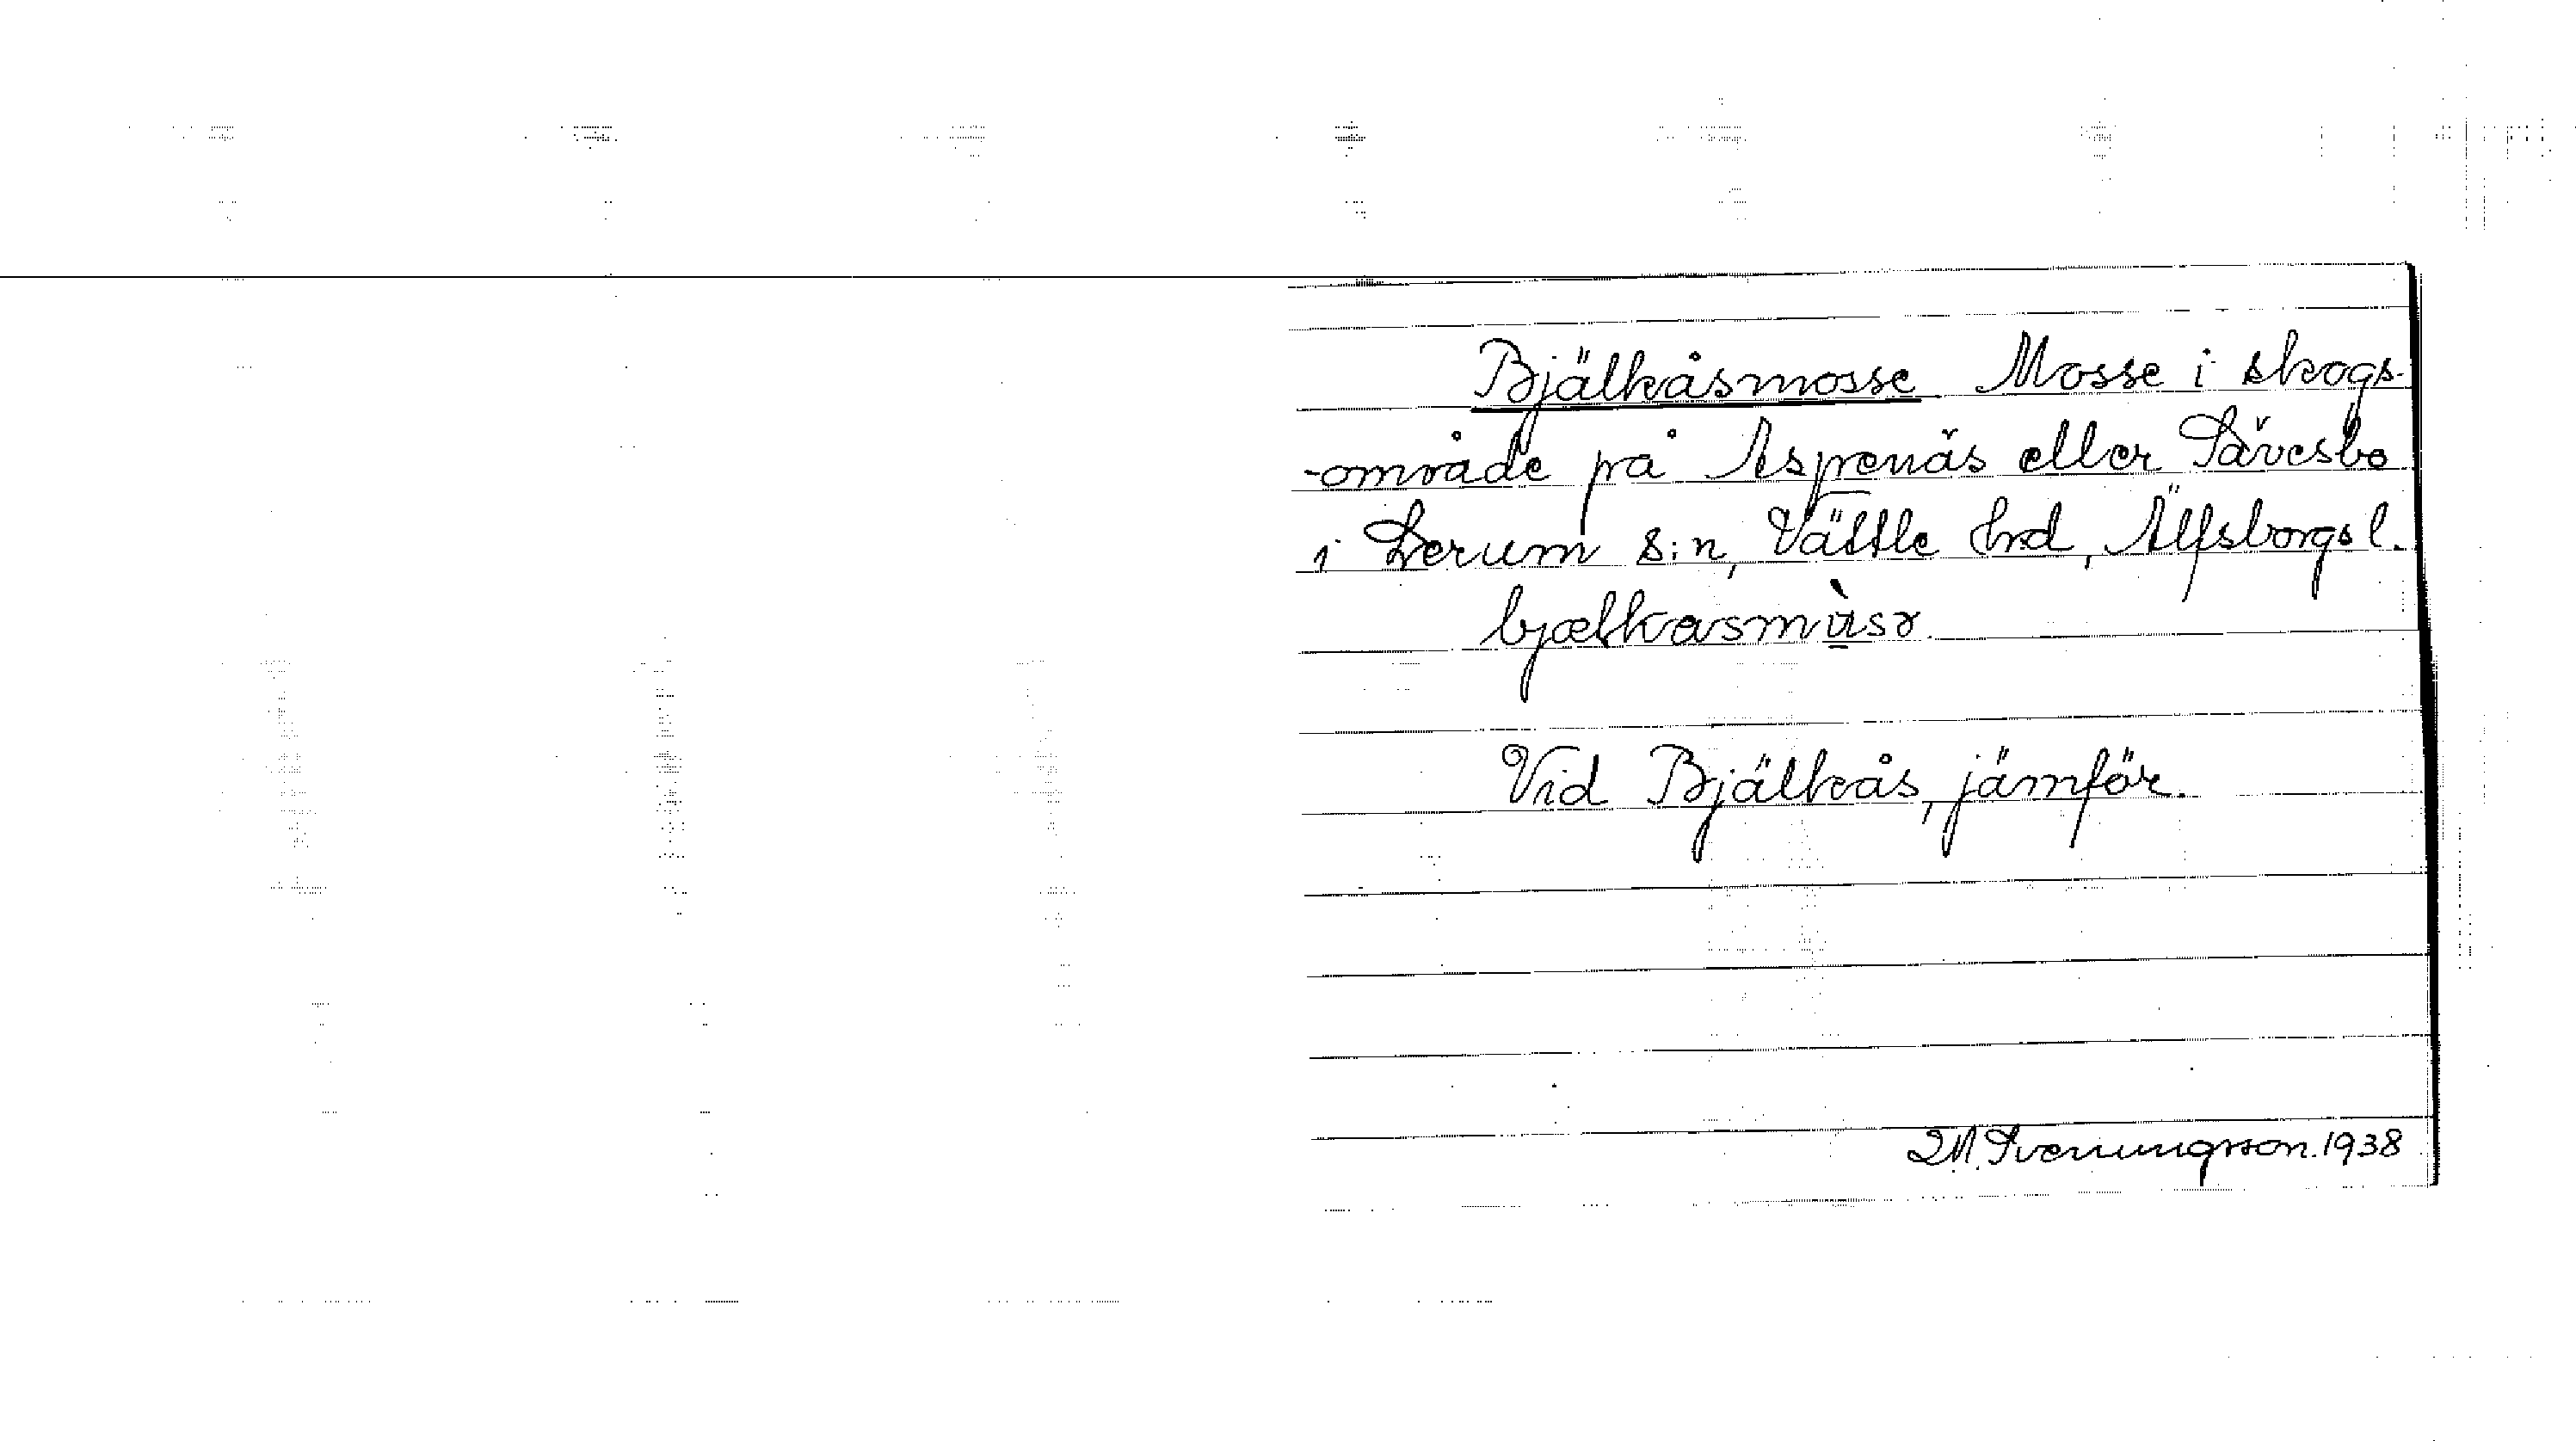 Bjälkåsmosse Mosse i skogs-
-område på Aspenäs eller Sävesbo
i Lerum s:n, Vättle hrd, Älfsborgs l.
bjælkasmùsr.
Vid Bjälkås, jämför.
M. Svenungsson. 1938